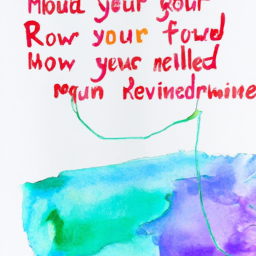 Moud your your
Row your fowd
Mow yeur nellled
rogun Kevinedrmine